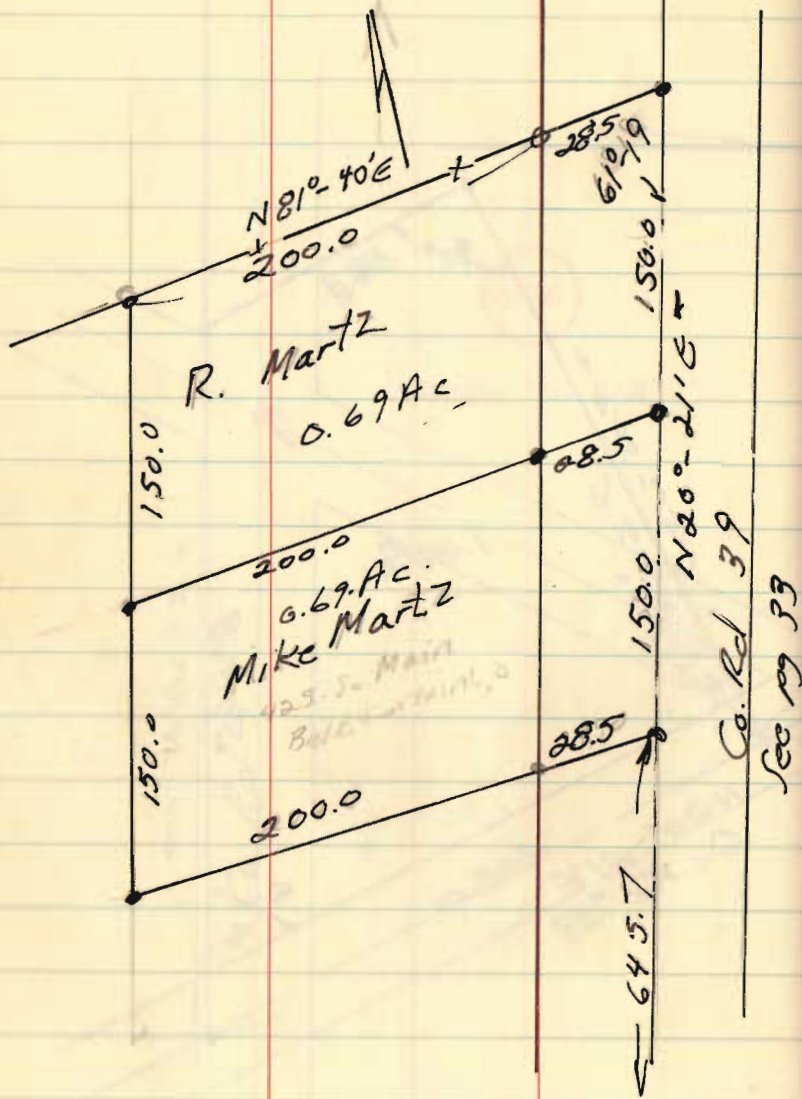 N 81°-40'E
200.0
28.5
61°-19
150.0
R. Martz
0.69 Ac.
150.0
28.5
N20°-21'E
200.0
0.69 Ac.
Mike Martz
425 S. Main
150.0
150.0
28.5
200.0
645.7
Co. Rd 39
See pg 33